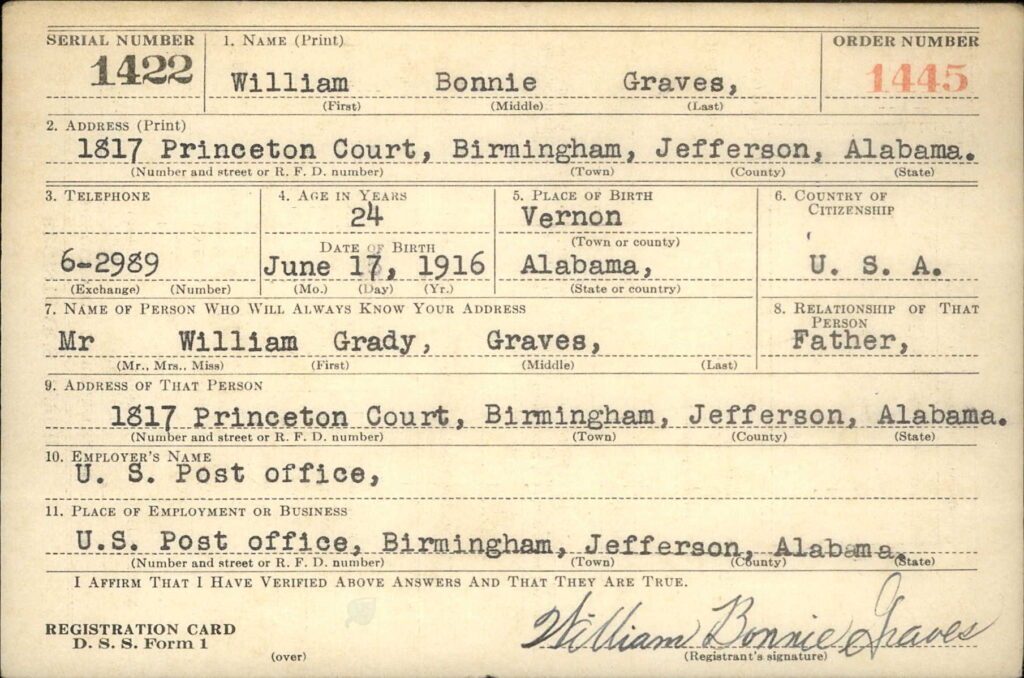 SERIAL NUMBER 1. NAME (Print) ORDER NUMBER
1422 William Bonnie Graves, 1445
(First) (Middle) (Last)
2. ADDRESS (Print)
1817 Princeton Court, Birmingham, Jefferson, Alabama.
(Number and street or R. F. D. number) (Town) (County) (State)
3. TELEPHONE 4. AGE IN YEARS 5. PLACE OF BIRTH 6. COUNTRY OF CITIZENSHIP
24 Vernon
DATE OF BIRTH (Town or county)
6-2989 June 17, 1916 Alabama, U. S. A.
(Exchange) (Number) (Mo.) (Day) (Yr.) (State or country)
7. NAME OF PERSON WHO WILL ALWAYS KNOW YOUR ADDRESS 8. RELATIONSHIP OF THAT PERSON
Mr William Grady, Graves, Father,
(Mr., Mrs., Miss) (First) (Middle) (Last)
9. ADDRESS OF THAT PERSON
1817 Princeton Court, Birmingham, Jefferson, Alabama.
(Number and street or R. F. D. number) (Town) (County) (State)
10. EMPLOYER'S NAME
U. S. Post office,
11. PLACE OF EMPLOYMENT OR BUSINESS
U.S. Post office, Birmingham, Jefferson, Alabama.
(Number and street or R. F. D. number) (Town) (County) (State)
I AFFIRM THAT I HAVE VERIFIED ABOVE ANSWERS AND THAT THEY ARE TRUE.
REGISTRATION CARD William Bonnie Graves
D. S. S. Form 1
(over) (Registrant's signature)